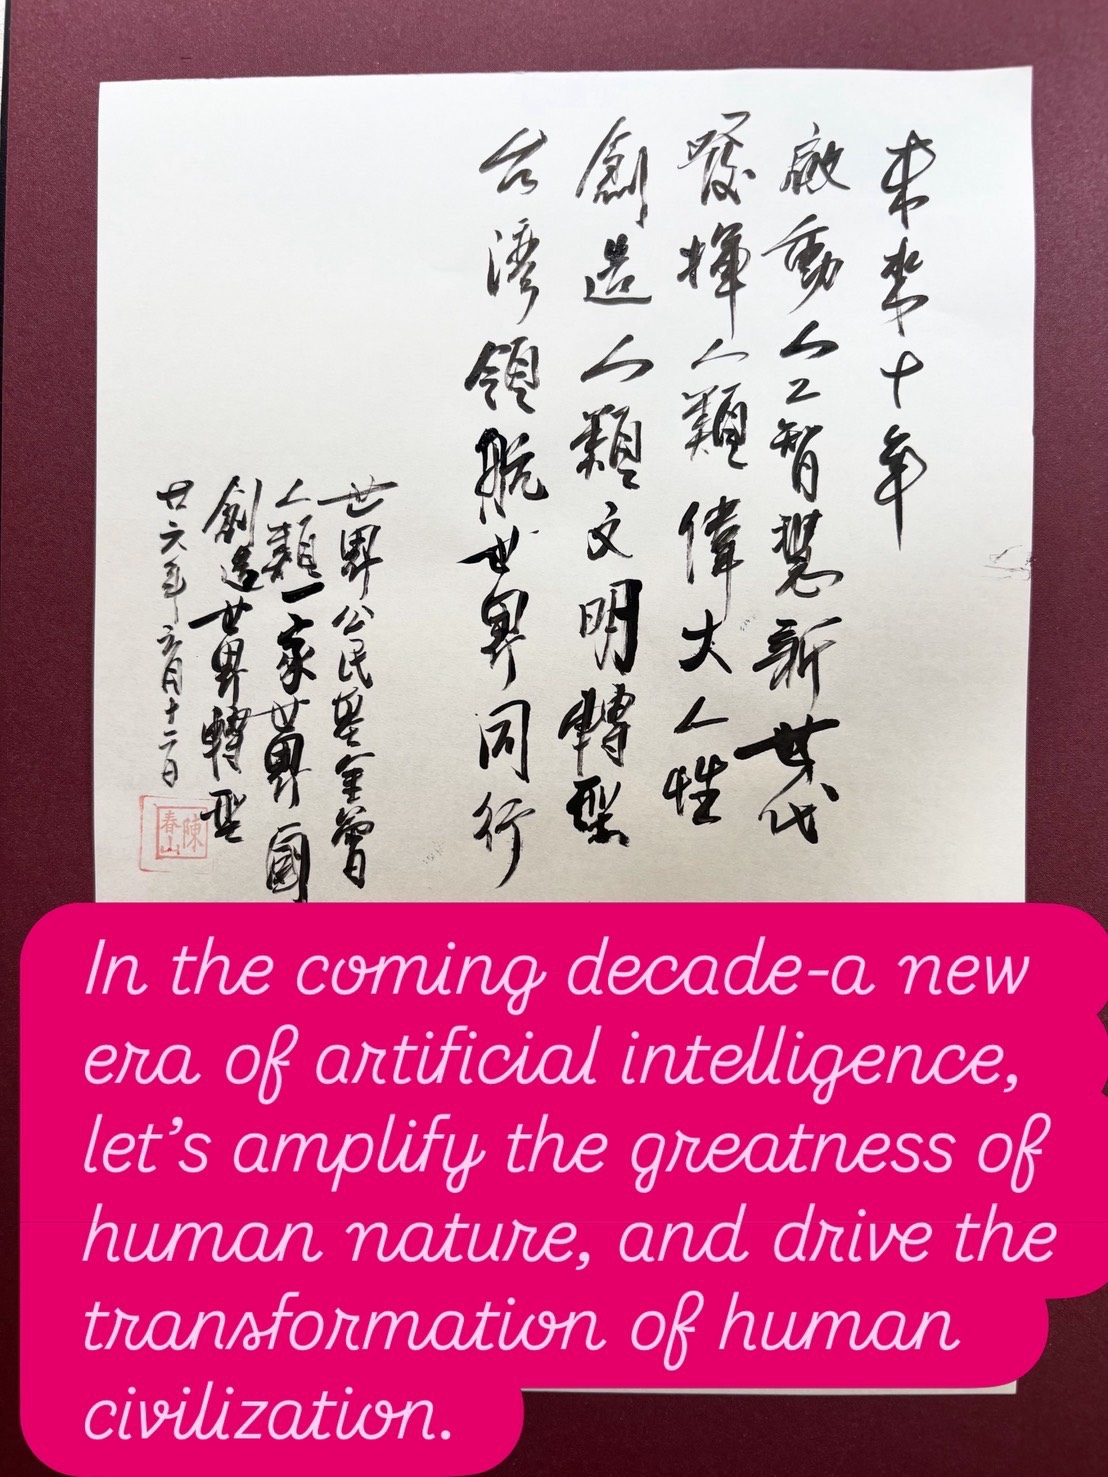 未來十年
啟動人工智慧新世代
發揮人類偉大人性
創造人類文明轉型
台灣領航世界同行
世界公民基金會
人類一家世界國
創造世界轉型
廿六年六月十二日
陳春山
In the coming decade-a new
era of artificial intelligence,
let's amplify the greatness of
human nature, and drive the
transformation of human
civilization.